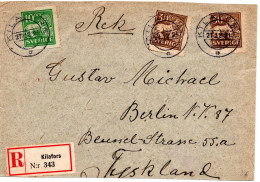 Rek
SVERIGE SVERIGE SVERIGE
Gustav Michael
Berlin N.V. 37
Beussel-Strasse 55.a
Tyskland
R Kilafors
N:r 343